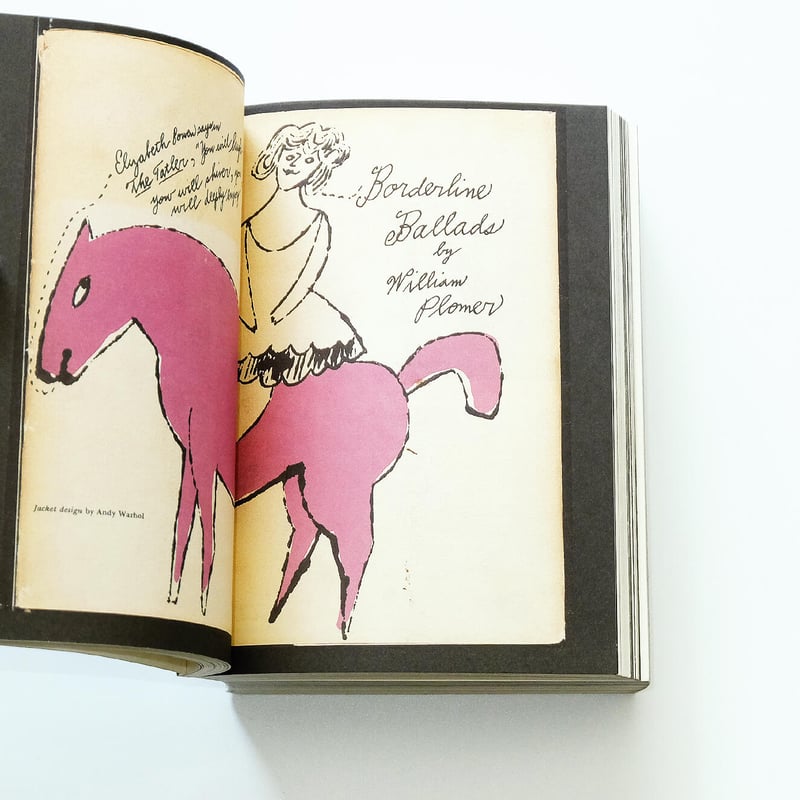 Elizabeth Bowen says in
The Tatler, "You will
you will shiver, you
will deeply enjoy
Jacket design by Andy Warhol
Borderline
Ballads
by
William
Plomer